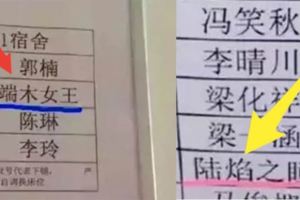 1宿舍
郭楠
端木女王
陈琳
李玲
冯笑秋
李晴川
梁化
梁一涵
陆焰之